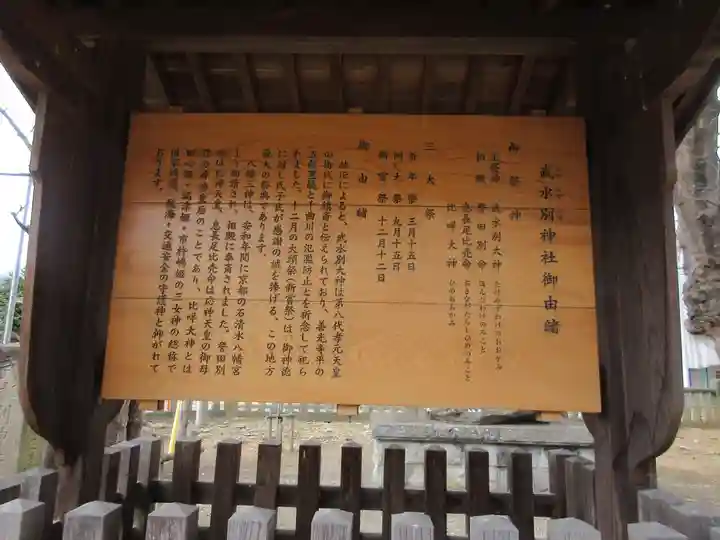 武水別神社御由緒
御祭神
主祭神 武水別大神 たけみずわけのおおかみ
相殿 誉田別命 ほんだわけのみこと
息長足比売命 おきながたらしひめのみこと
比咩大神 ひめおおかみ
三大祭
祈年祭 三月十五日
例大祭 九月十五日
新嘗祭 十二月十二日
御由緒
社記によると、武水別大神は第八代孝元天皇
の御代に御鎮斎と伝えられており、善光寺平の
五穀豊穣と千曲川の氾濫防止とを祈念して祀ら
れました。十二月の大頭祭(新嘗祭)は、御神徳
に対し氏子民が感謝の誠を捧げる、この地方
最大の祭典であります。
八幡三神は、安和年間に京都の石清水八幡宮
より勧請され、相殿に奉斎されました。誉田別
命は応神天皇、息長足比売命は応神天皇の御母
神功皇后のことであり、比咩大神とは
・湍津姫・市杵嶋姫の三女神の総称で
・航海・交通安全の守護神と仰がれて
おります。